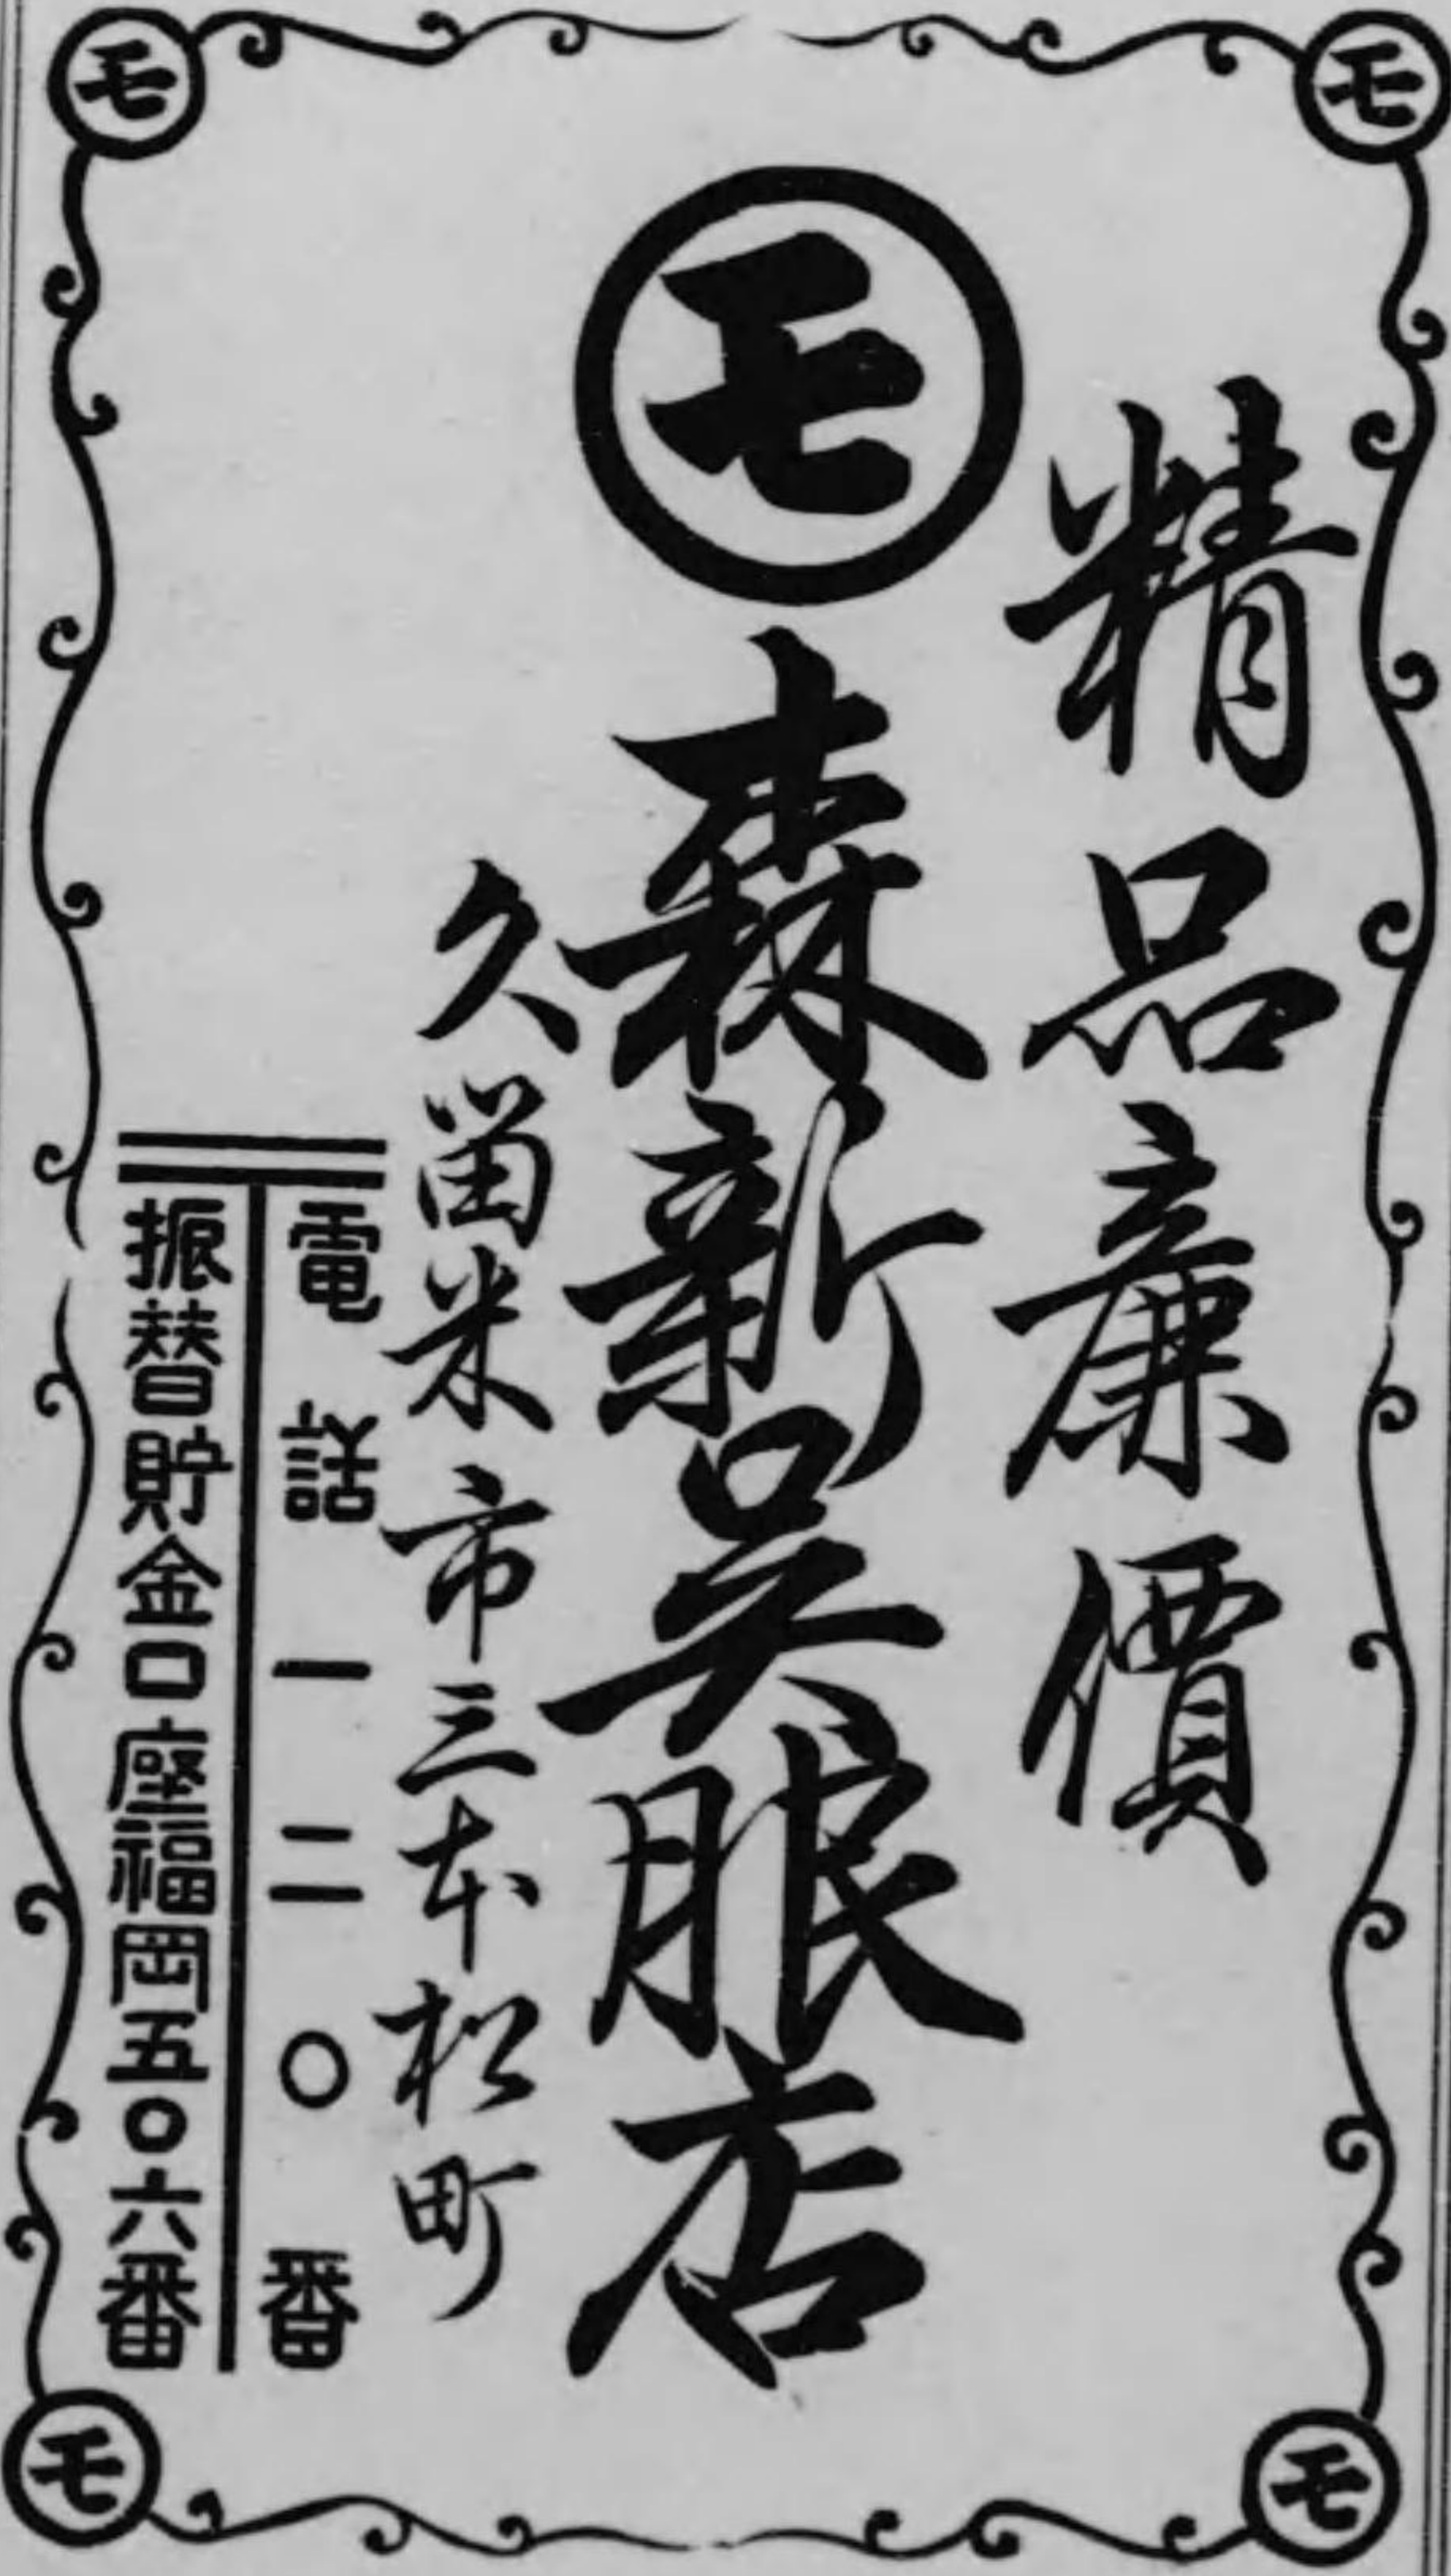 精品廉價
モ
森新呉服店
久留米市三本松町
電話一二〇番
振替貯金口座福岡五〇六番
モ
モ
モ
モ